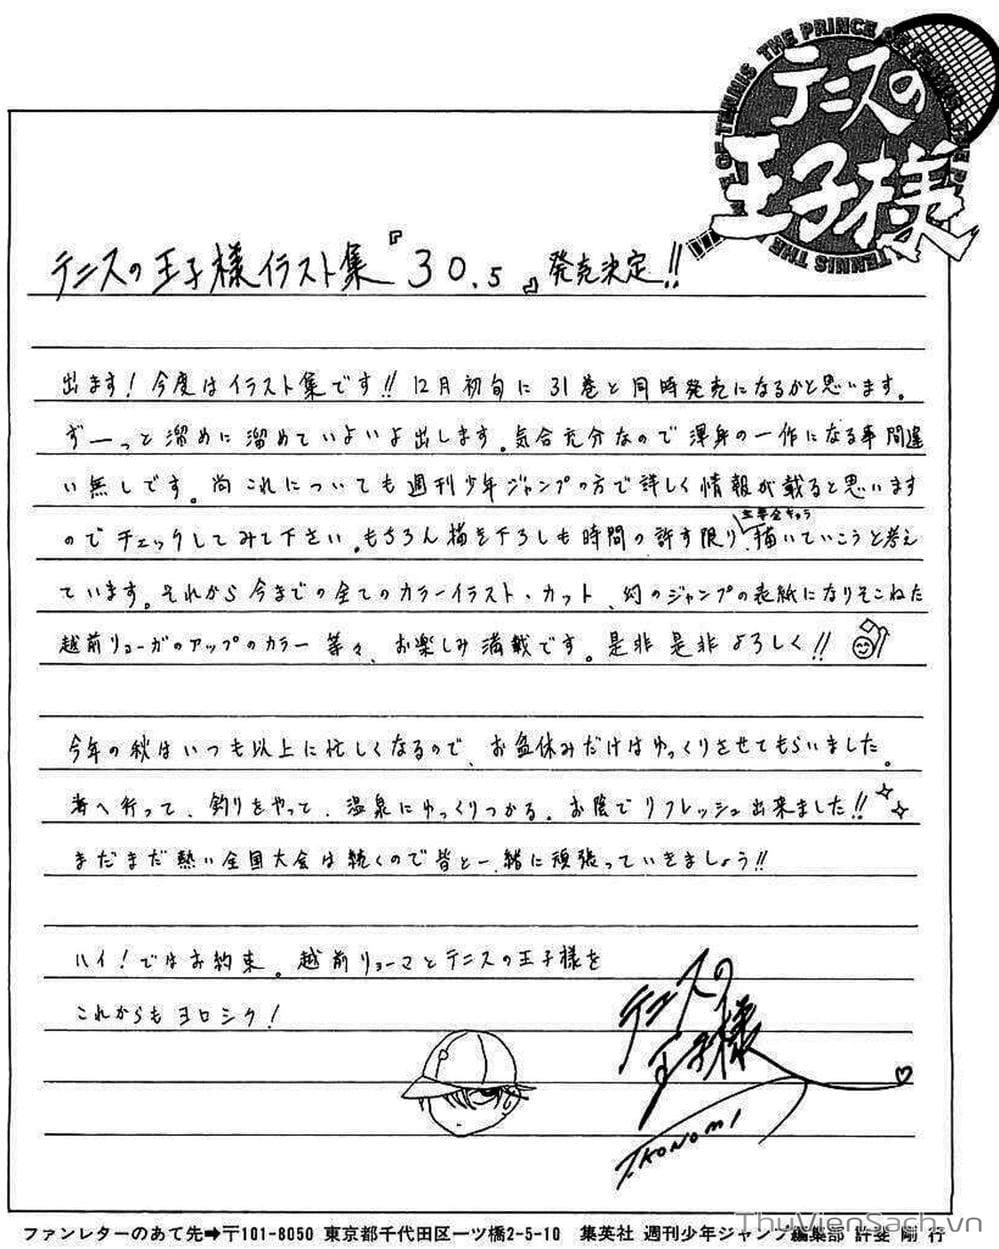 THE PRINCE OF TENNIS
テニスの
王子様
テニスの王子様イラスト集『30.5』発売決定!!
出ます!今度はイラスト集です!!12月初旬に31巻と同時発売になるかと思います。
ずーっと溜めに溜めていよいよ出します。気合充分なので渾身の一作になる事間違
い無しです。尚これについても週刊少年ジャンプの方で詳しく情報が載ると思います
のでチェックしてみて下さい。もちろん描き下ろしも時間の許す限り、描いていこうと考え
ています。それから今までの全てのカラーイラスト・カット、幻のジャンプの表紙になりそこねた
越前リョーガのアップのカラー等々、お楽しみ満載です。是非是非よろしく!!
今年の秋はいつも以上に忙しくなるので、お盆休みだけはゆっくりさせてもらいました。
海へ行って、釣りをやって、温泉にゆっくりつかる。お陰でリフレッシュ出来ました!!
まだまだ熱い全国大会は続くので皆と一緒に頑張っていきましょう!!
ハイ!ではお約束。越前リョーマとテニスの王子様を
これからもヨロシク!
テニスの
王子様
T.KONOMI
ファンレターのあて先➡〒101-8050 東京都千代田区一ツ橋2-5-10 集英社 週刊少年ジャンプ編集部 許斐 剛 行
ThuVienSach.vn